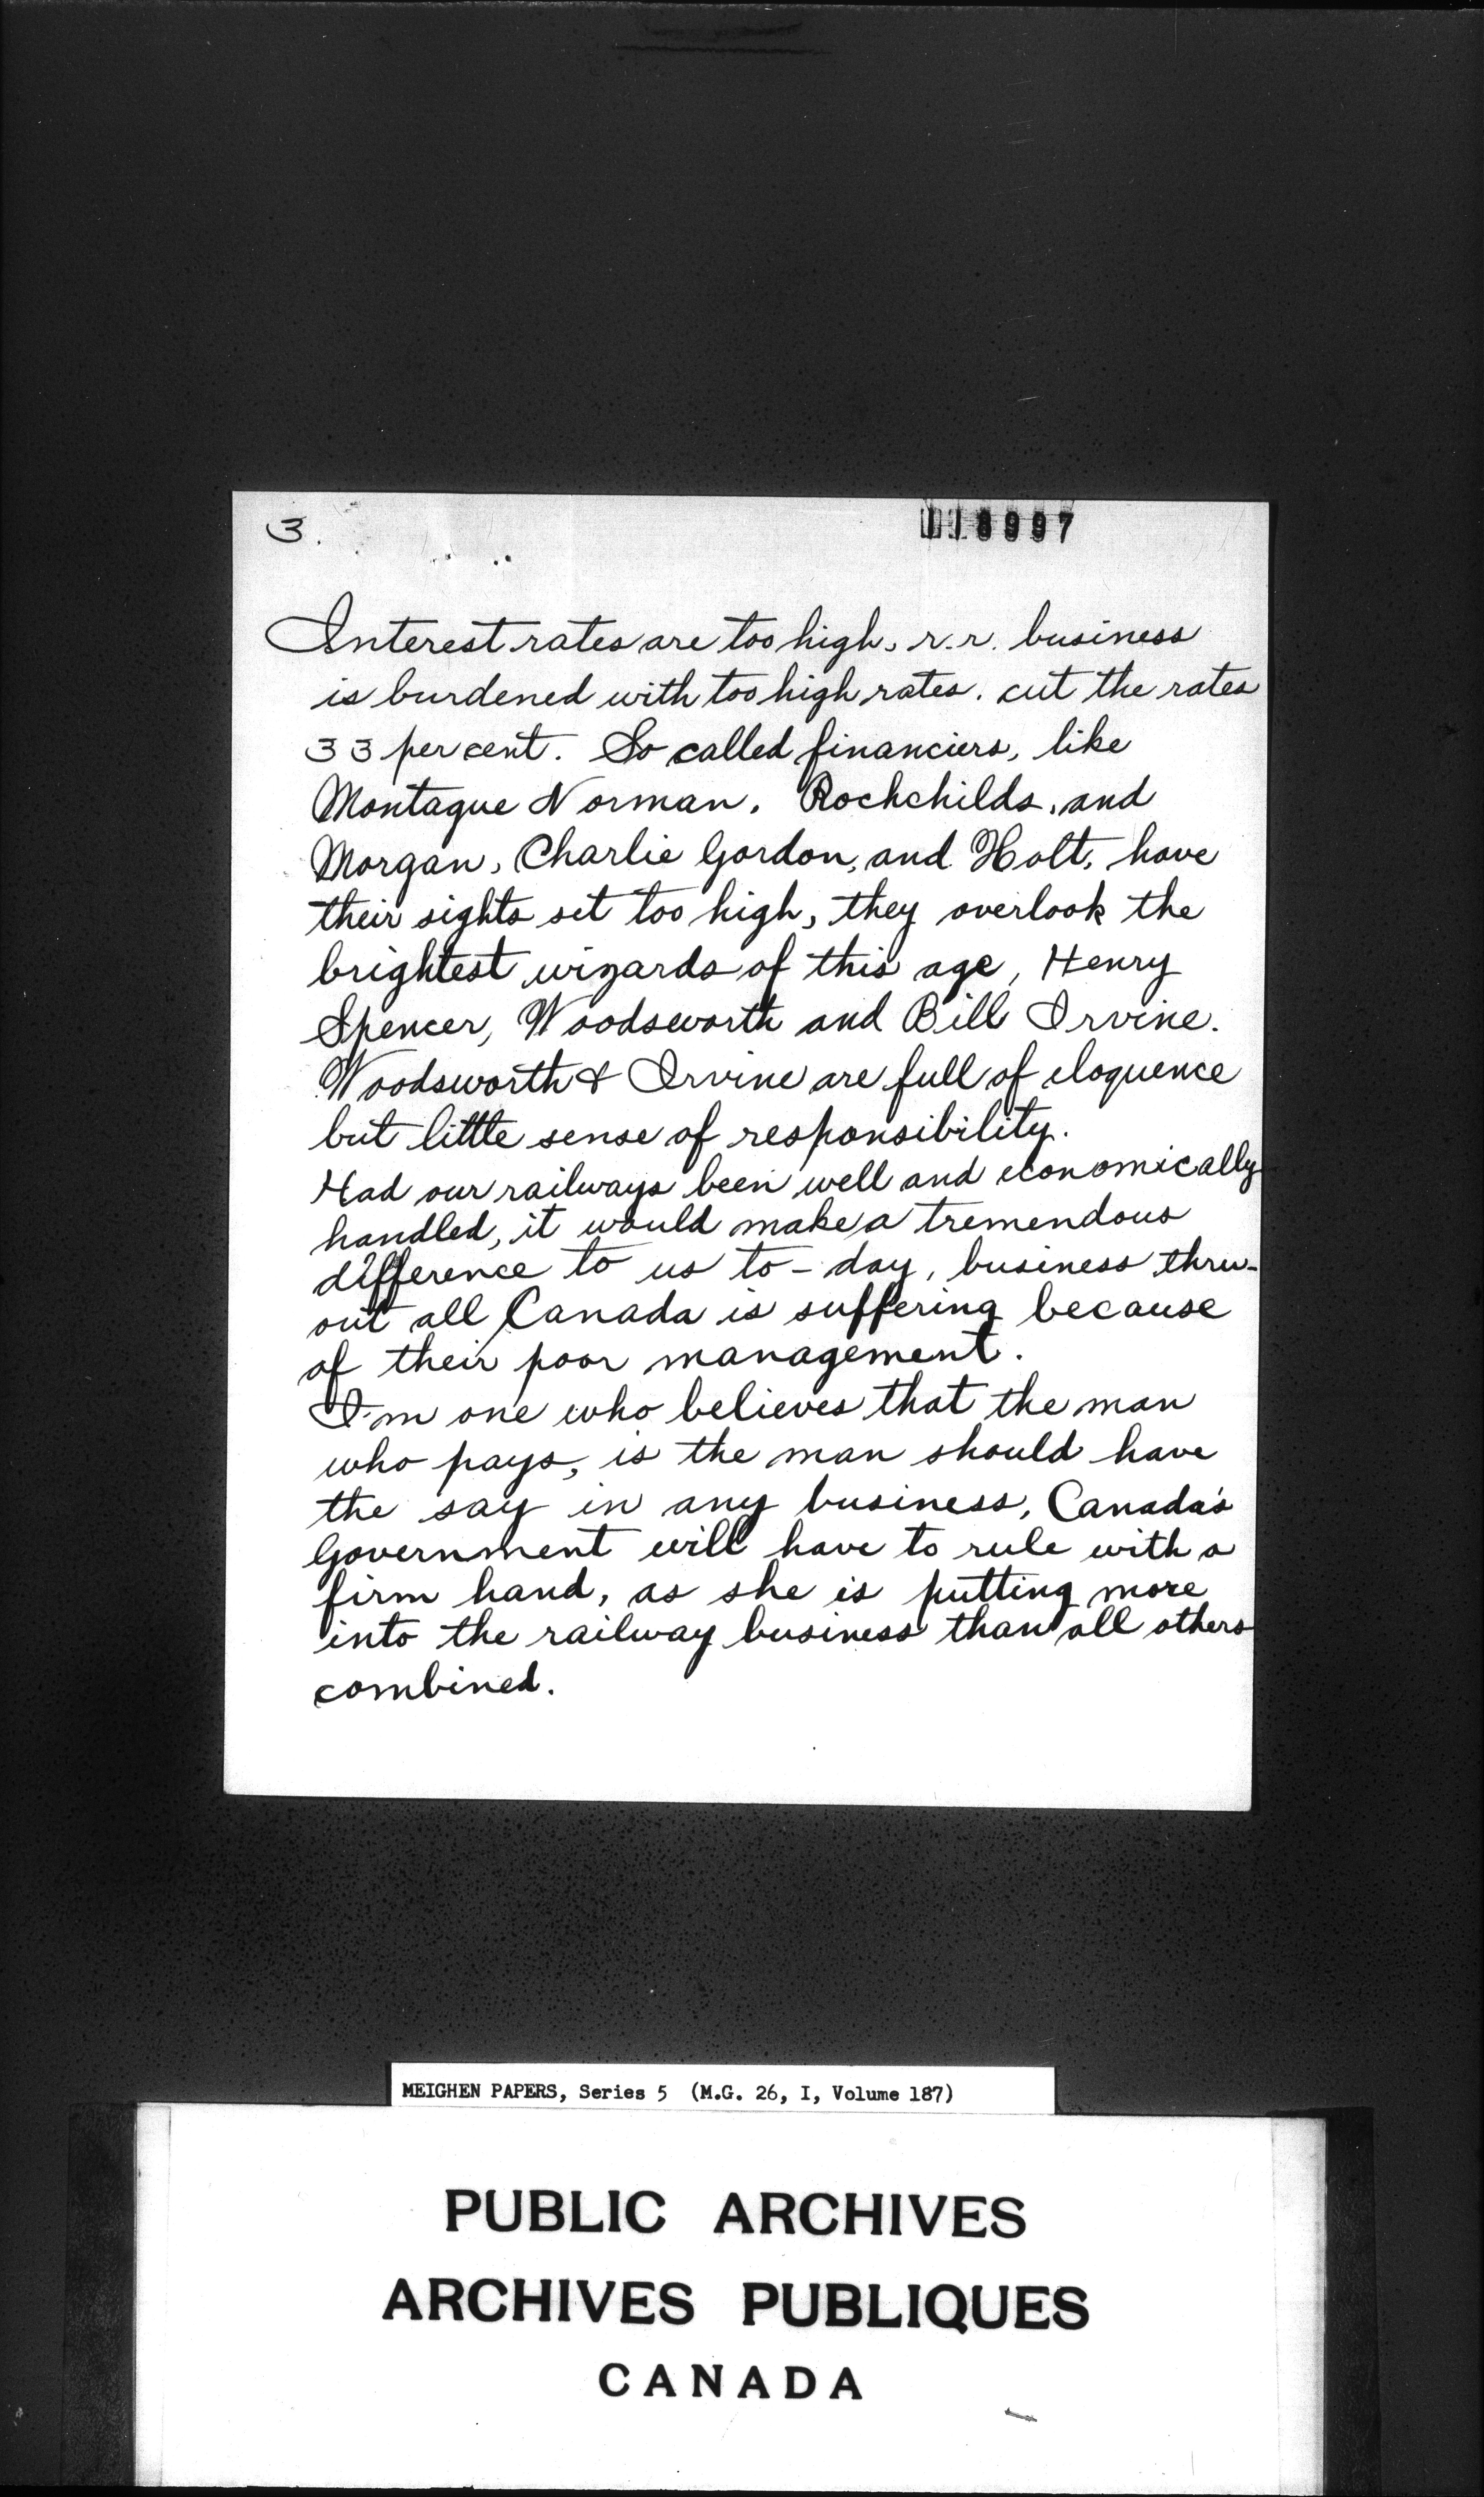 3.
118997
Interest rates are too high, r.r. business
is burdened with too high rates. cut the rates
33 per cent. So called financiers, like
Montague Norman. Rochchilds, and
Morgan, Charlie Gordon, and Holt, have
their sights set too high, they overlook the
brightest wizards of this age, Henry
Spencer, Woodsworth and Bill Irvine.
Woodsworth & Irvine are full of eloquence
but little sense of responsibility.
Had our railways been well and economically
handled, it would make a tremendous
difference to us to-day, business thru-
out all Canada is suffering because
of their poor management.
I'm one who believes that the man
who pays, is the man should have
the say in any business, Canada's
Government will have to rule with a
firm hand, as she is putting more
into the railway business than all others
combined.
MEIGHEN PAPERS, Series 5 (M.G. 26, I, Volume 187)
PUBLIC ARCHIVES
ARCHIVES PUBLIQUES
CANADA